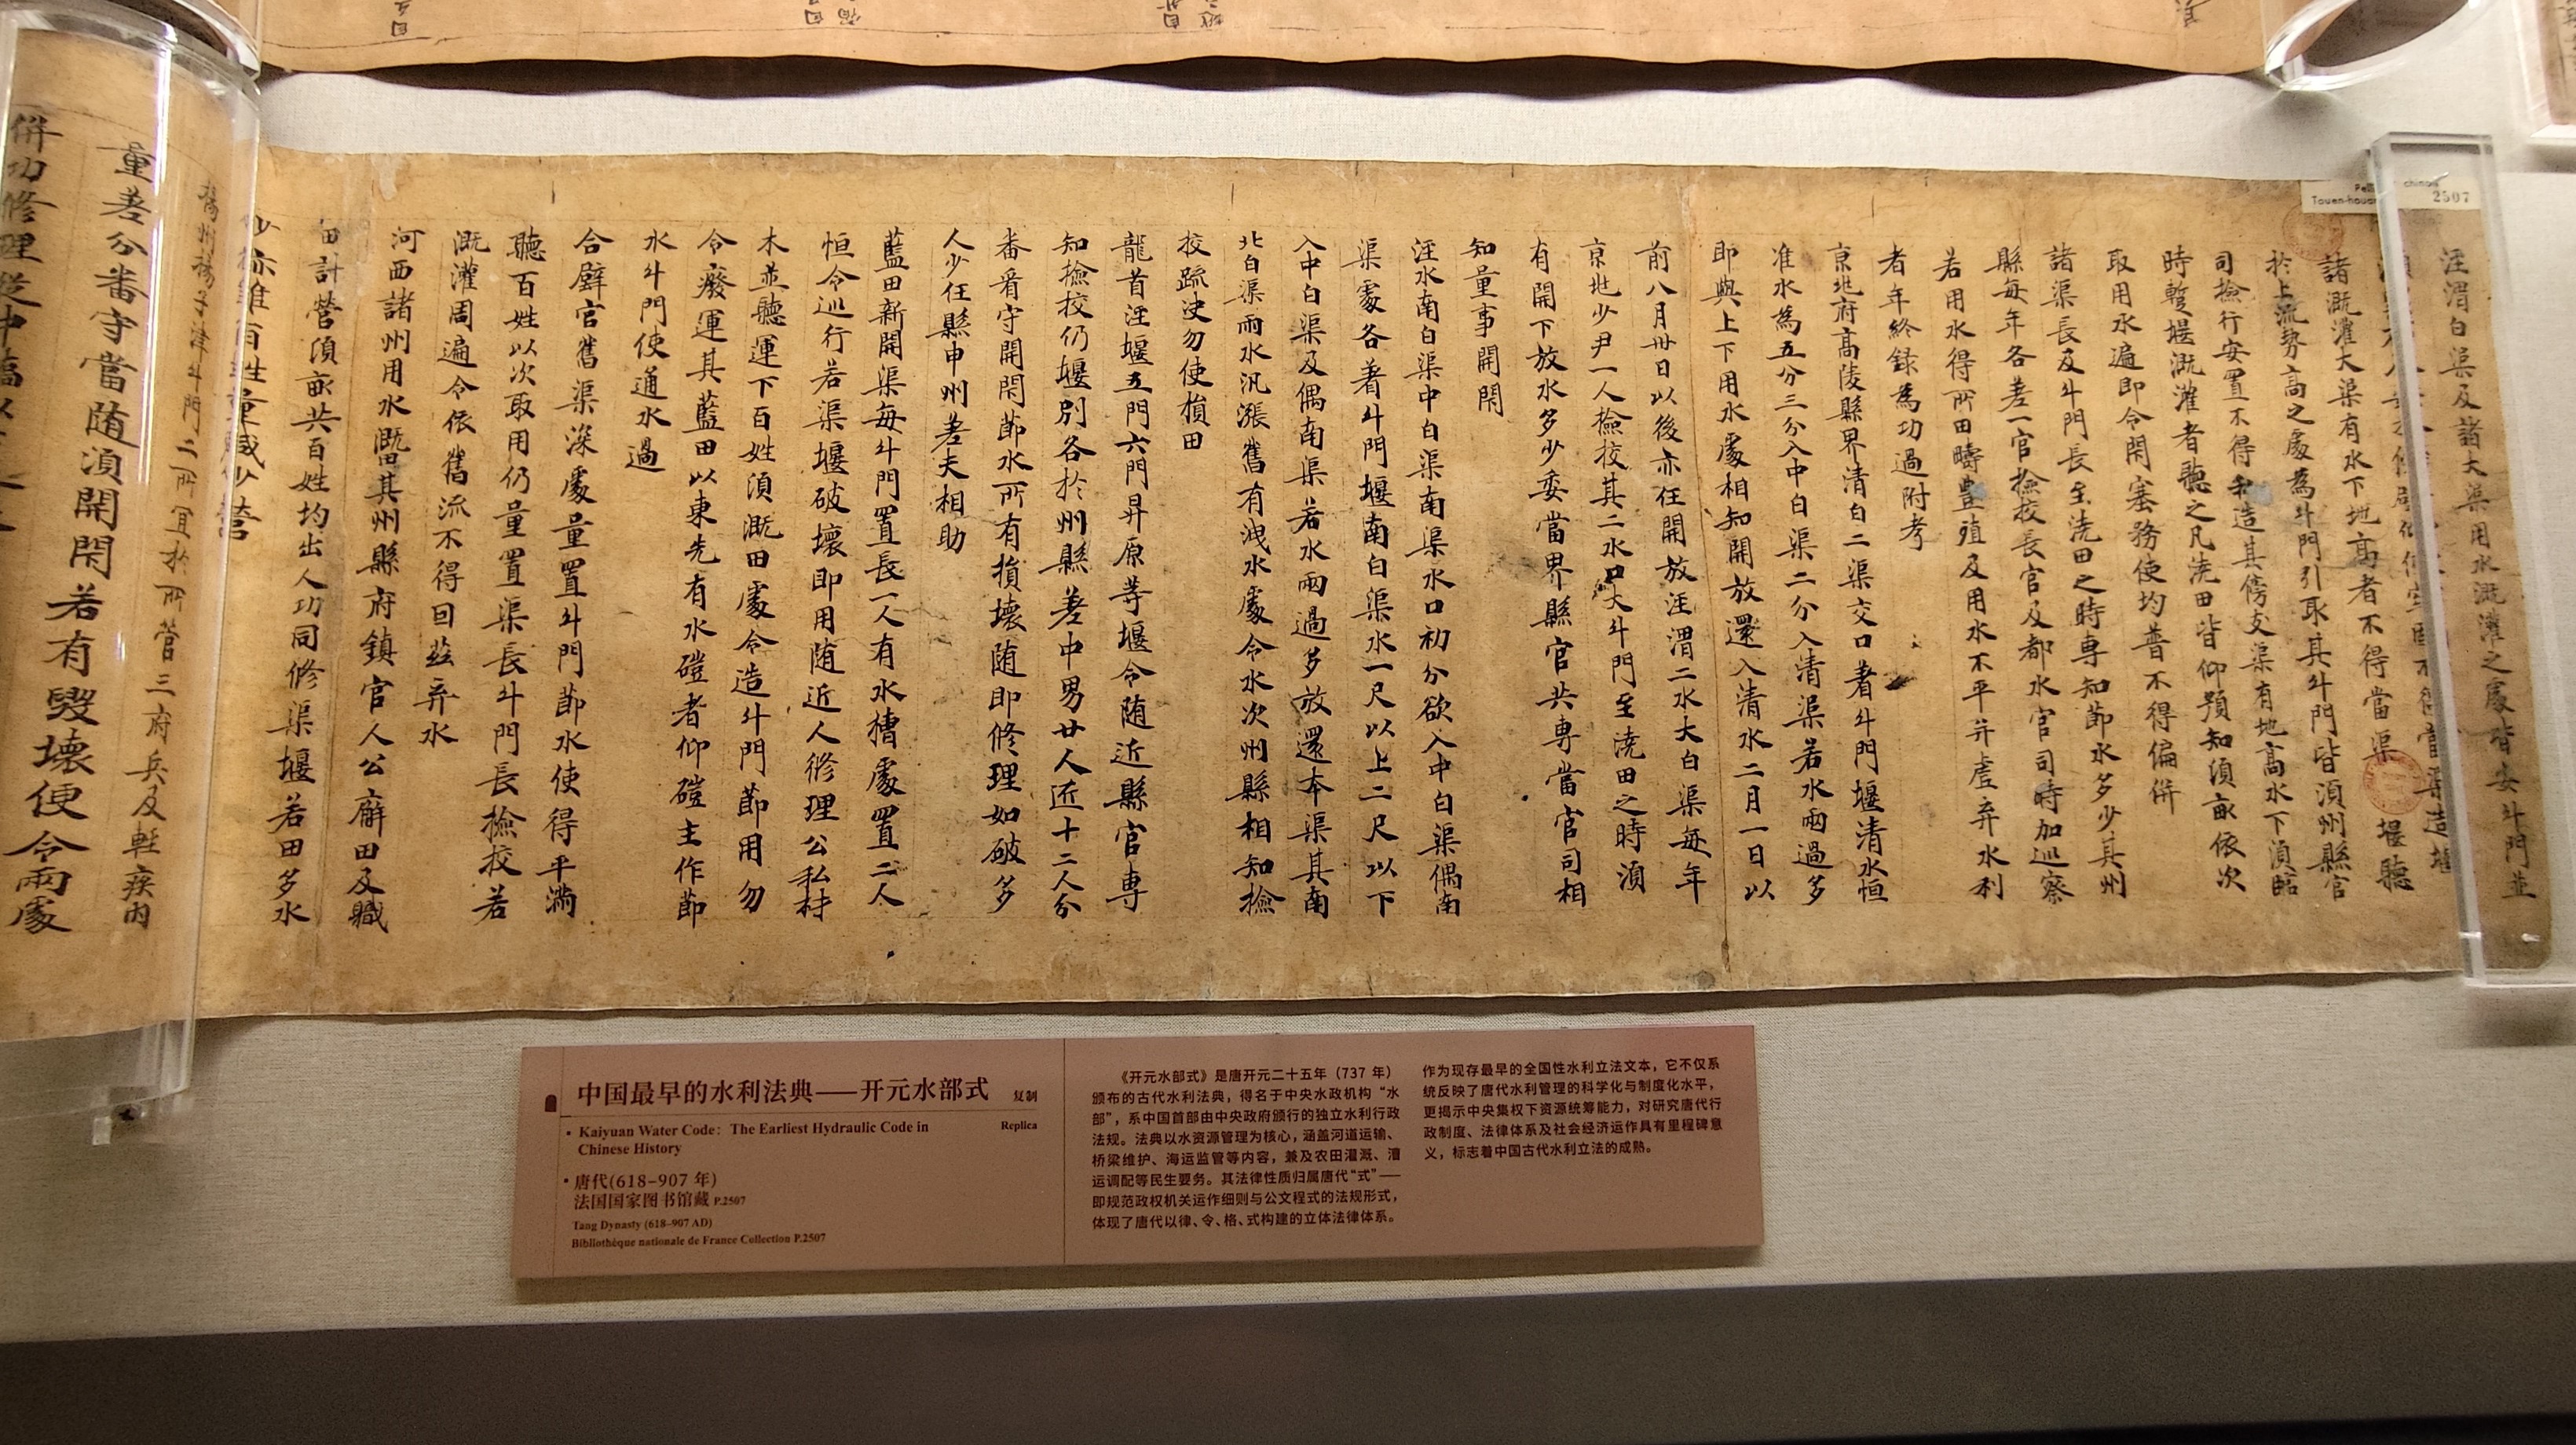 涇渭白渠及諸大渠用水溉灌之處皆安斗門並
諸溉灌大渠有水下地高者不得當渠堰聽
於上流勢高之處為斗門引取其斗門皆湏州縣官
司撿行安置不得私造其傍支渠有地高水下湏臨
時蹔堰溉灌者聽之凡澆田皆仰預知湏畝依次
取用水遍即令閇塞務使均普不得偏併
諸渠長及斗門長至澆田之時専知節水多少其州
縣每年各差一官撿挍長官及都水官司時加巡察
若用水得所田疇豊殖及用水不平并虛弃水利
者年終錄為功過附考
京兆府高陵縣界清白二渠交口著斗門堰清水恒
准水為五分三分入中白渠二分入清渠若水兩過多
即與上下用水處相知開放還入清水二月一日以
前八月卅日以後亦任開放涇渭二水大白渠每年
京兆少尹一人撿挍其二水口大斗門至澆田之時湏
有開下放水多少委當界縣官共専當官司相
知量事開閇
涇水南白渠中白渠南渠水口初分欲入中白渠偶南
渠處各著斗門堰南白渠水一尺以上二尺以下
入中白渠及偶南渠若水兩過多放還本渠其南
北白渠雨水汎漲舊有洩水處令水次州縣相知撿
挍疏決勿使損田
龍首涇堰五門六門昇原等堰令随近縣官専
知撿挍仍堰別各於州縣差中男廿人近十二人分
番看守開閇節水所有損壞随即修理如破多
人少任縣申州差夫相助
藍田新開渠每斗門置長一人有水槽處置二人
恒令巡行若渠堰破壞即用随近人修理公私材
木並聽運下百姓湏溉田處令造斗門節用勿
令廢運其藍田以東先有水磑者仰磑主作節
水斗門使通水過
合壁官舊渠深處量置斗門節水使得平滿
聽百姓以次取用仍量置渠長斗門長撿挍若
溉灌周遍令依舊流不得囙茲弃水
河西諸州用水溉田其州縣府鎮官人公廨田及職
田計營湏畝共百姓均出人功同修渠堰若田多水
少亦雖百姓量減少營
揚州揚子津斗門二所宜於所管三府兵及輕疾內
量差分番守當随湏開閇若有毀壞便令兩處
併功修理從中
Touen-houan
chinois
2507
中国最早的水利法典——开元水部式
复制
Kaiyuan Water Code: The Earliest Hydraulic Code in
Chinese History
Replica
唐代(618-907 年)
法国国家图书馆藏 P.2507
Tang Dynasty (618-907 AD)
Bibliothèque nationale de France Collection P.2507
《开元水部式》是唐开元二十五年（737 年）
颁布的古代水利法典，得名于中央水政机构“水
部”，系中国首部由中央政府颁行的独立水利行政
法规。法典以水资源管理为核心，涵盖河道运输、
桥梁维护、海运监管等内容，兼及农田灌溉、漕
运调配等民生要务。其法律性质归属唐代“式”——
即规范政权机关运作细则与公文程式的法规形式，
体现了唐代以律、令、格、式构建的立体法律体系。
作为现存最早的全国性水利立法文本，它不仅系
统反映了唐代水利管理的科学化与制度化水平，
更揭示中央集权下资源统筹能力，对研究唐代行
政制度、法律体系及社会经济运作具有里程碑意
义，标志着中国古代水利立法的成熟。